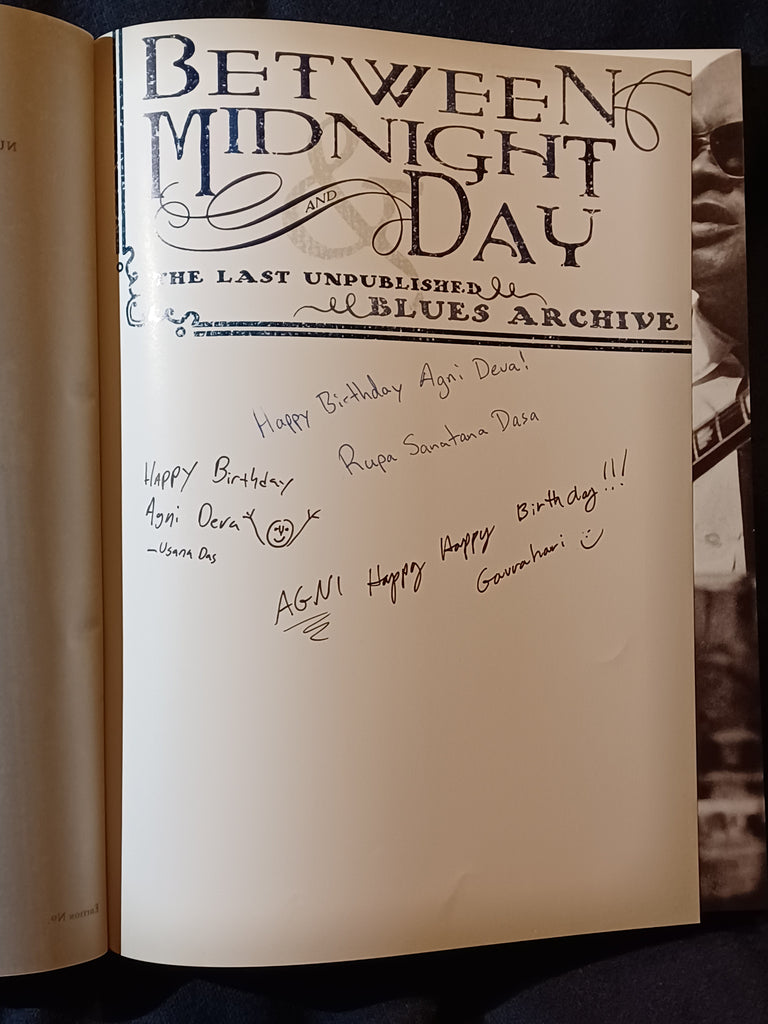 BETWEEN
MIDNIGHT
AND DAY
THE LAST UNPUBLISHED
BLUES ARCHIVE
Happy Birthday Agni Deva!
Rupa Sanatana Dasa
HAPPY Birthday
Agni Deva
-Usana Das
AGNI Happy Happy Birthday!!!
Gaurahari
EDITION NO.